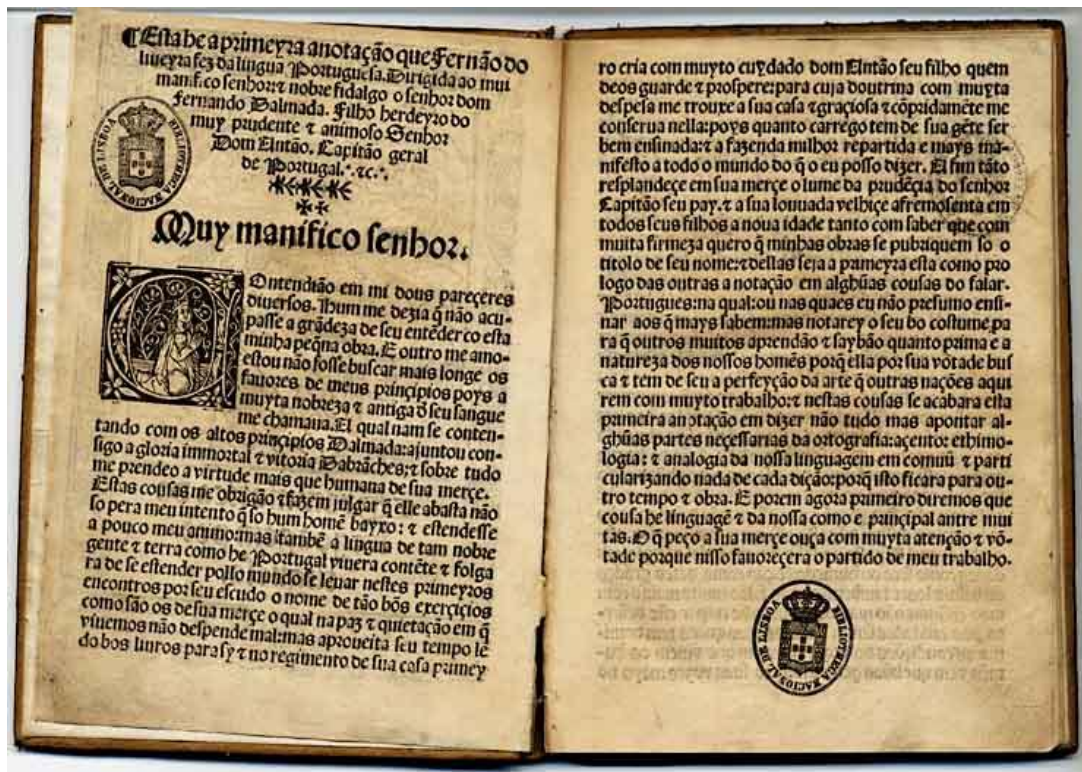 ¶ Esta he a primeyra anotação que Fernão do
liueyra fez da lingua Portuguesa. Dirigida ao mui
manifico senhor: ⁊ nobre fidalgo o senhor dom
Fernando Dalmada. Filho herdeyro do
muy prudente ⁊ animoso Senhor
Dom Antão. Capitão geral
de Portugal. ⁊c.
Muy manifico senhor.
COntendião em mi dous pareçeres
diuersos. Hum me dezia q̃ não acu-
passe a grãdeza de seu entẽder co esta
minha peq̃na obra. E outro me amo-
estou não fosse buscar mais longe os
fauores de meus prinçipios poys a
muyta nobreza ⁊ antiga d̃ seu sangue
me chamaua. El qual nam se conten-
tando com os altos prinçipios Dalmada: ajuntou con-
sigo a gloria immortal ⁊ vitoria Dabrãches: ⁊ sobre tudo
me prendeo a virtude mais que humana de sua merçe.
Estas cousas me obrigão ⁊ fazem julgar q̃ elle abasta não
so pera meu intento q̃ so hum homẽ bayxo: ⁊ estendesse
a pouco meu animo: mas ı̃tambẽ a lingua de tam nobre
gente ⁊ terra como he Portugal viuera contẽte ⁊ folga
ra de se estender pollo mundo se leuar nestes primeyros
encontros por seu escudo o nome de tão bõs exerçiçios
como são os de sua merçe o qual na paz ⁊ quietação em q̃
viuemos não despende mal: mas aproueita seu tempo lẽ
do bos liuros para sy ⁊ no regimento de sua casa primey
ro cria com muyto cuydado dom Antão seu filho quem
deos guarde ⁊ prospere: para cuja doutrina com muyta
despesa me trouxe a sua casa ⁊ graçiosa ⁊ cõpridamẽte me
conserua nella: poys quanto carrego tem de sua gẽte ser
bem ensinada: ⁊ a fazenda milhor repartida e mays ma-
nifesto a todo o mundo do q̃ o eu posso dizer. A fim tãto
resplandeçe em sua merçe o lume da prudẽçia do senhor
Capitão seu pay. ⁊ a sua louuada velhiçe afremosenta em
todos seus filhos a noua idade tanto com saber que com
muita firmeza quero q̃ minhas obras se pubriquem so o
titolo de seu nome: ⁊ dellas seja a primeyra esta como pro
logo das outras a notação em alghũas cousas do falar.
Portugues: na qual: ou nas quaes eu não presumo ensi-
nar aos q̃ mays sabem: mas notarey o seu bo costume pa
ra q̃ outros muitos aprendão ⁊ saybão quanto prima e a
natureza dos nossos homẽs porq̃ ella por sua võtade bus
ca ⁊ tem de seu a perfeyção da arte q̃ outras nações aqui
rem com muyto trabalho: ⁊ nestas cousas se acabara esta
primeira anotação em dizer não tudo mas apontar al-
ghũas partes neçessarias da ortografia: açento: ethimo-
logia: ⁊ analogia da nossa linguagem em comuũ ⁊ parti
cularizando nada de cada dição: porq̃ isto ficara para ou-
tro tempo ⁊ obra. E porem agora primeiro diremos que
cousa he linguagẽ ⁊ da nossa como e prinçipal antre mui
tas. O q̃ peço a sua merçe ouça com muyta atenção ⁊ võ-
tade porque nisso fauoreçera o partido de meu trabalho.
BIBLIOTHECA NACIONAL DE LISBOA
BIBLIOTHECA NACIONAL DE LISBOA